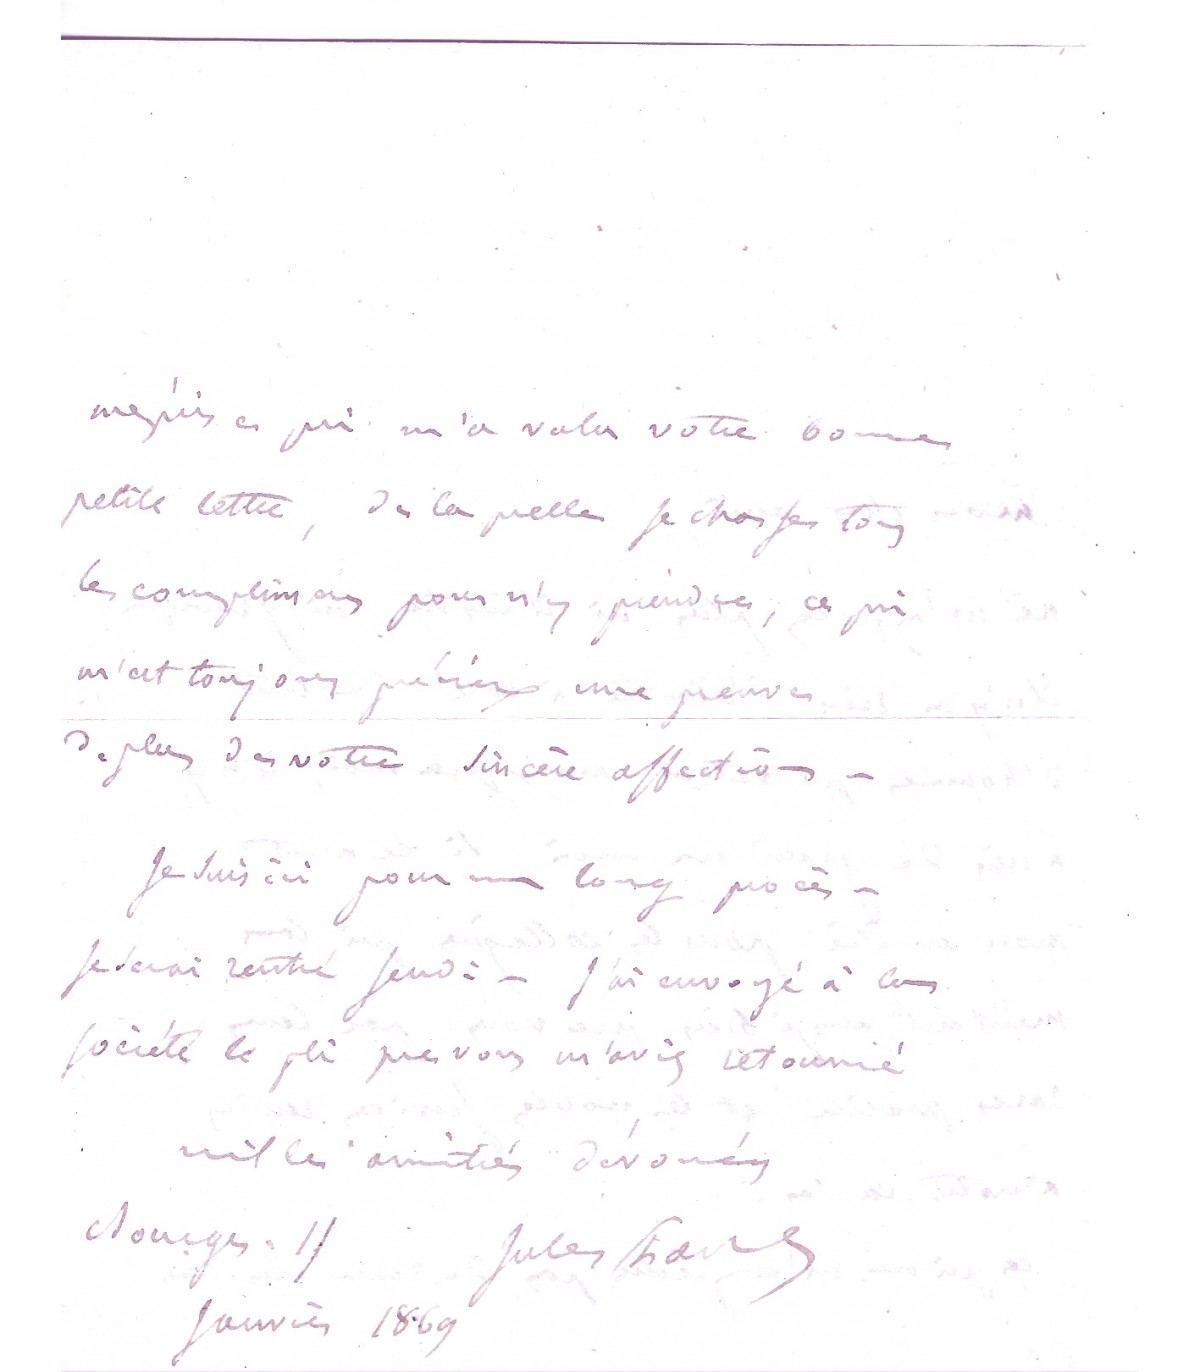 méprise qui m'a valu votre bonne
petite lettre, de laquelle je chasse tous
les complimens pour n'y prendre, ce qui
m'est toujours précieux une preuve
de plus de votre sincère affection –
Je suis ici pour un long procès –
Je serai rentré jeudi – J'ai envoyé à la
société le pli que vous m'aviez retourné
mille amitiés dévouées
11 Jules Favre
janvier 1869